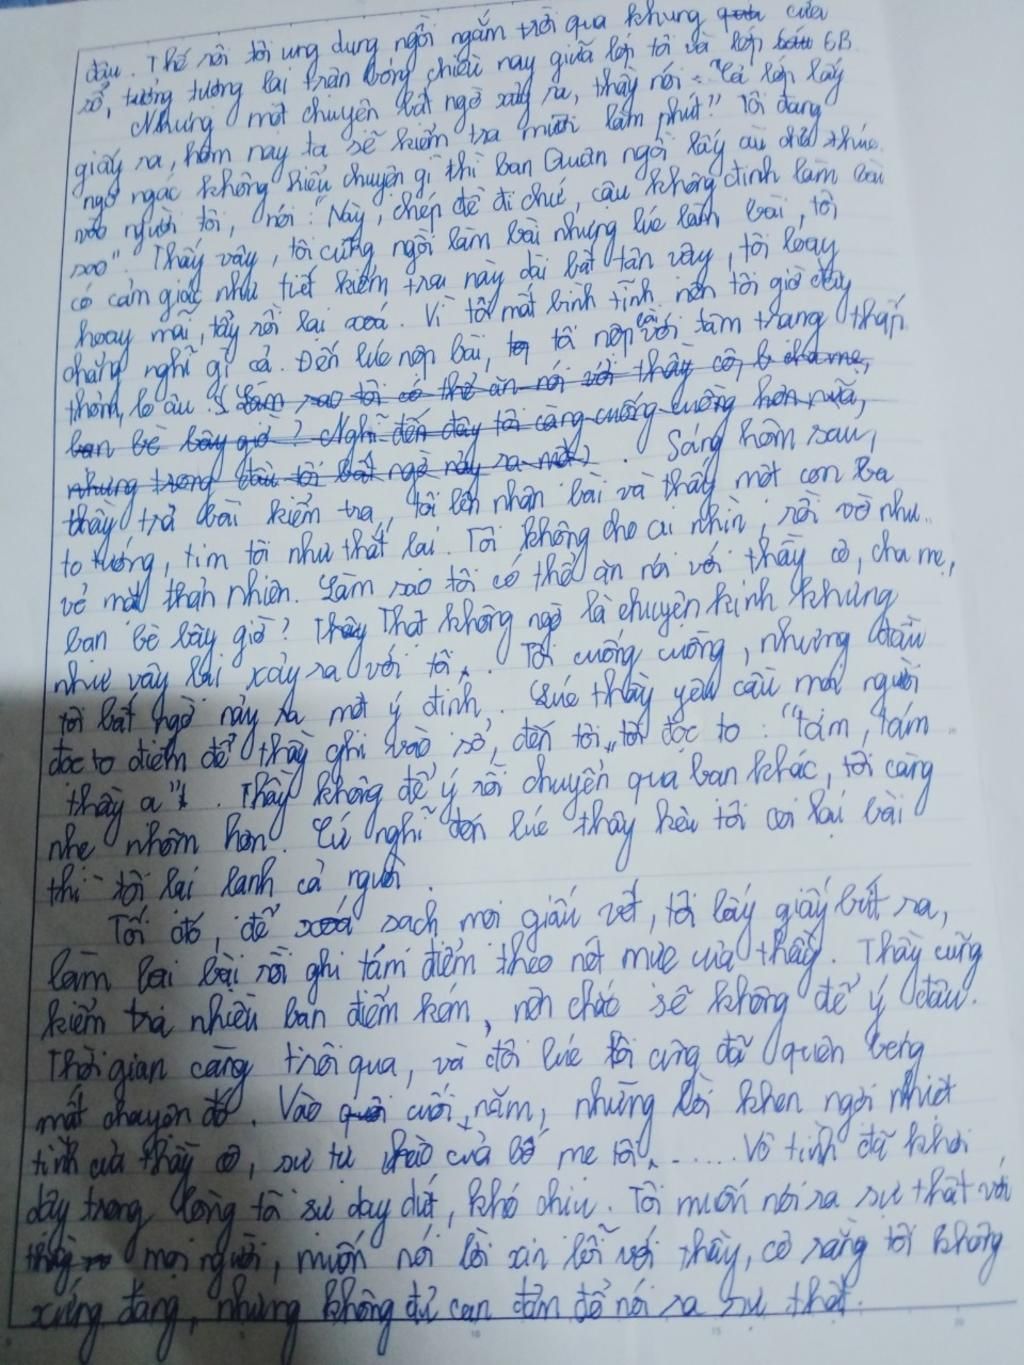 đâu. Thế rồi tôi ung dung ngồi ngắm trời qua khung cửa
sổ, tưởng tượng lại trận bóng chiều nay giữa lớp tôi và lớp 6B
Nhưng một chuyện bất ngờ xảy ra, thầy nói: "Cả lớp lấy
giấy ra, hôm nay ta sẽ kiểm tra mười lăm phút". Tôi đang
ngơ ngác không hiểu chuyện gì thì bạn Quân ngồi lấy cùi chỏ thúc
vào người tôi, nói: "Này, chép đề đi chứ, cậu không định làm bài
sao". Thấy vậy, tôi cũng ngồi làm bài nhưng lúc làm bài, tôi
có cảm giác như tiết kiểm tra này dài bất tận vậy, tôi loay
hoay mãi, tẩy rồi lại xoá. Vì tôi mất bình tĩnh nên tôi giờ đây
chẳng nghĩ gì cả. Đến lúc nộp bài, tôi nộp bài với tâm trạng thấp
thỏm, lo âu. (Làm sao tôi có thể ăn nói với thầy cô, cha mẹ,
bạn bè bây giờ? Nghĩ đến đây tôi càng cuống cuồng hơn nữa,
nhưng trong đầu tôi bất ngờ nảy ra một). Sáng hôm sau,
thầy trả bài kiểm tra, tôi lên nhận bài và thấy một con ba
to tướng, tim tôi như thắt lại. Tôi không cho ai nhìn, rồi vờ như
vẻ mặt thản nhiên. Làm sao tôi có thể ăn nói với thầy cô, cha mẹ,
bạn bè bây giờ? Thầy Thật không ngờ là chuyện kinh khủng
như vậy lại xảy ra với tôi. Tôi cuống cuồng, nhưng đầu
tôi bất ngờ nảy ra một ý định. Lúc thầy yêu cầu mọi người
đọc to điểm để thầy ghi vào sổ, đến tôi, tôi đọc to: "tám, tám
thầy ạ". Thầy không để ý rồi chuyển qua bạn khác, tôi càng
nhẹ nhõm hơn. Cứ nghĩ đến lúc thầy kêu tôi coi lại bài
thì tôi lại lạnh cả người.
Tối đó, để xoá sạch mọi giấu vết, tôi lấy giấy bút ra,
làm lại bài rồi ghi tám điểm theo nét mực của thầy. Thầy cũng
kiểm tra nhiều bạn điểm kém, nên chắc sẽ không để ý đâu.
Thời gian càng trôi qua, và đôi lúc tôi cũng đã quên beng
mất chuyện đó. Vào cuối năm, những lời khen ngợi nhiệt
tình của thầy cô, sự tự hào của bố mẹ tôi....... Vô tình đã khơi
dậy trong lòng tôi sự day dứt, khó chịu. Tôi muốn nói ra sự thật với
mọi người, muốn nói lời xin lỗi với thầy, cô rằng tôi không
xứng đáng, nhưng không đủ can đảm để nói ra sự thật.